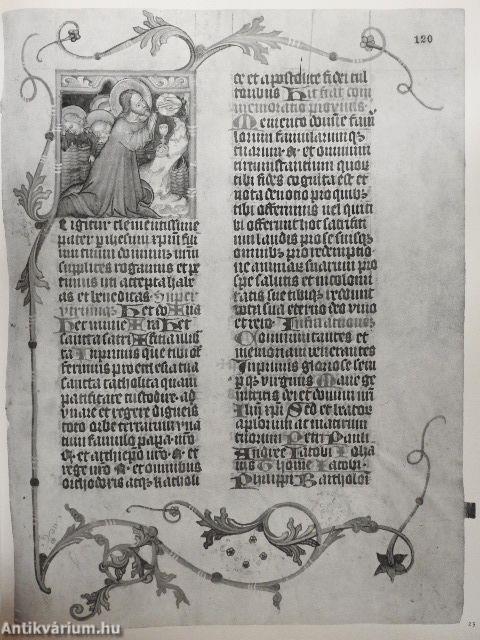 120
eigitur clementissime
pater p ihesum xpm fili
um tuum dominum nrm
supplices rogamus et pe
timus uti accepta habe
as et benedicas Super
utrumqz Hec do+na
hec mune+ra hec
sancta sacri+ficia illi
ta Inprimis que tibi of
ferimus pro ecclesia tua
sancta catholica quam
pacificare custodire ad
unare et regere digneris
toto orbe terrarum una
cum famulo papa nro
N et archiepo nro N et
rege nro N et omnibus
orthodoxis atqz katholi
ce et apostolice fidei cul
toribus Hic fiat com
memoratio pro vivis
Memento domine famu
lorum famularumqz
tuarum N et omnium
circumstantium quor
tibi fides cognita est et
nota devotio pro quibz
tibi offerimus vel qui ti
bi offerunt hoc sacrifici
um laudis pro se suisqz
omnibus pro redemptio
ne animar suarum pro
spe salutis et incolomi
tatis sue tibiqz reddunt
vota sua eterno deo vivo
et vero Infra actionem
Communicantes et
memoriam venerantes
Inprimis gloriose sem
p qz virginis Marie ge
nitricis dei et domini nri
Ihu xpi Sed et beator
aplorum ac martirum
tuorum Petri Pauli
Andree Jacobi Joha
nis Thome Jacobi
Philippi Bartholo
Antikvárium.hu
23